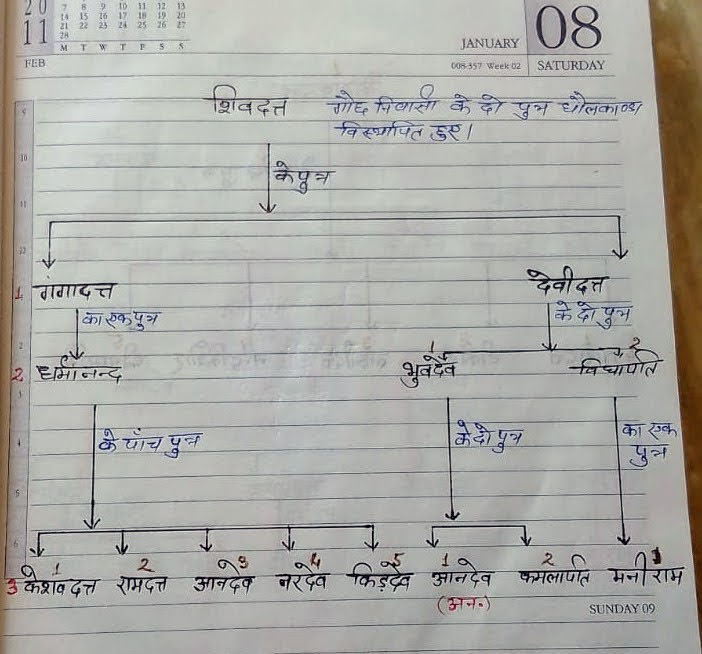 20
11
FEB
7 8 9 10 11 12 13
14 15 16 17 18 19 20
21 22 23 24 25 26 27
28
M T W T F S S
JANUARY
008-357 Week 02
08
SATURDAY
शिवदत्त गौछ निवासी के दो पुत्र धौलकाण्डा
विस्थापित हुए।
के पुत्र
1 गंगादत्त देवीदत्त
का एक पुत्र के दो पुत्र
1 2
2 धर्मानन्द भुवदेव विद्यापति
के पाँच पुत्र के दो पुत्र का एक
पुत्र
1 2 3 4 5 1 2 1
3 केशवदत्त रामदत्त आनदेव नरदेव किड़देव आनदेव कमलापति मनीराम
(अन.)
SUNDAY 09